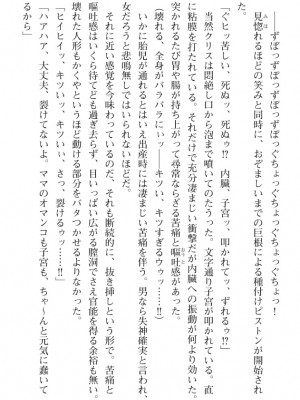 ずぽっずぽっずぽっずぽっぐちょっぐちょっぐちょっ！
見惚れるほどの笑みと同時に、おぞましいまでの巨根による種付けピストンが開始され
る。
「ぐヒッ苦しい、死ぬッ、死ぬゥ!? 内臓、子宮ッ、叩かれてッ、ずれるゥ!?」
当然クリスは悶絶し口から泡まで噴いてのたうった。文字通り子宮が叩かれている。直
に粘膜を打たれている。それだけで充分凄まじい衝撃だが内臓への振動が何より効いた。
突かれるたび胃や腸が持ち上がって尋常ならざる苦痛と嘔吐感があった。
（壊れる、全身がバラバラにィッ――キツい、キツすぎるウゥッ……!!）
はいかに胎児が通れるとはいえ出産時には凄まじい苦痛を伴う。男なら失神確実と言われ、
女だろうと悲鳴無しではいられないほどだ。
それに近い感覚を今味わっているのだ、それも断続的に、抜き挿しという形で。苦痛と
嘔吐感はいくら待てども過ぎ去らず、目いっぱい広がる膣洞でさえ官能を得る余裕も無い。
壊れた人形もかくやというほど動ける部分をバタつかせるよりなかった。
「ヒイヒィッ、キツいィッ、キツいィ、さっ、裂けるぅッ……!!」
「ハアハア、大丈夫、裂けてないよ。ママのオマンコも子宮も、ちゃ～んと元気に蠢いて
るから」